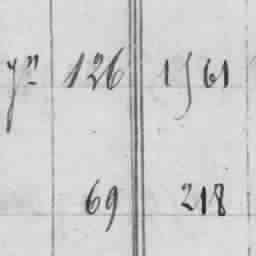 yn 126 1561
69 218